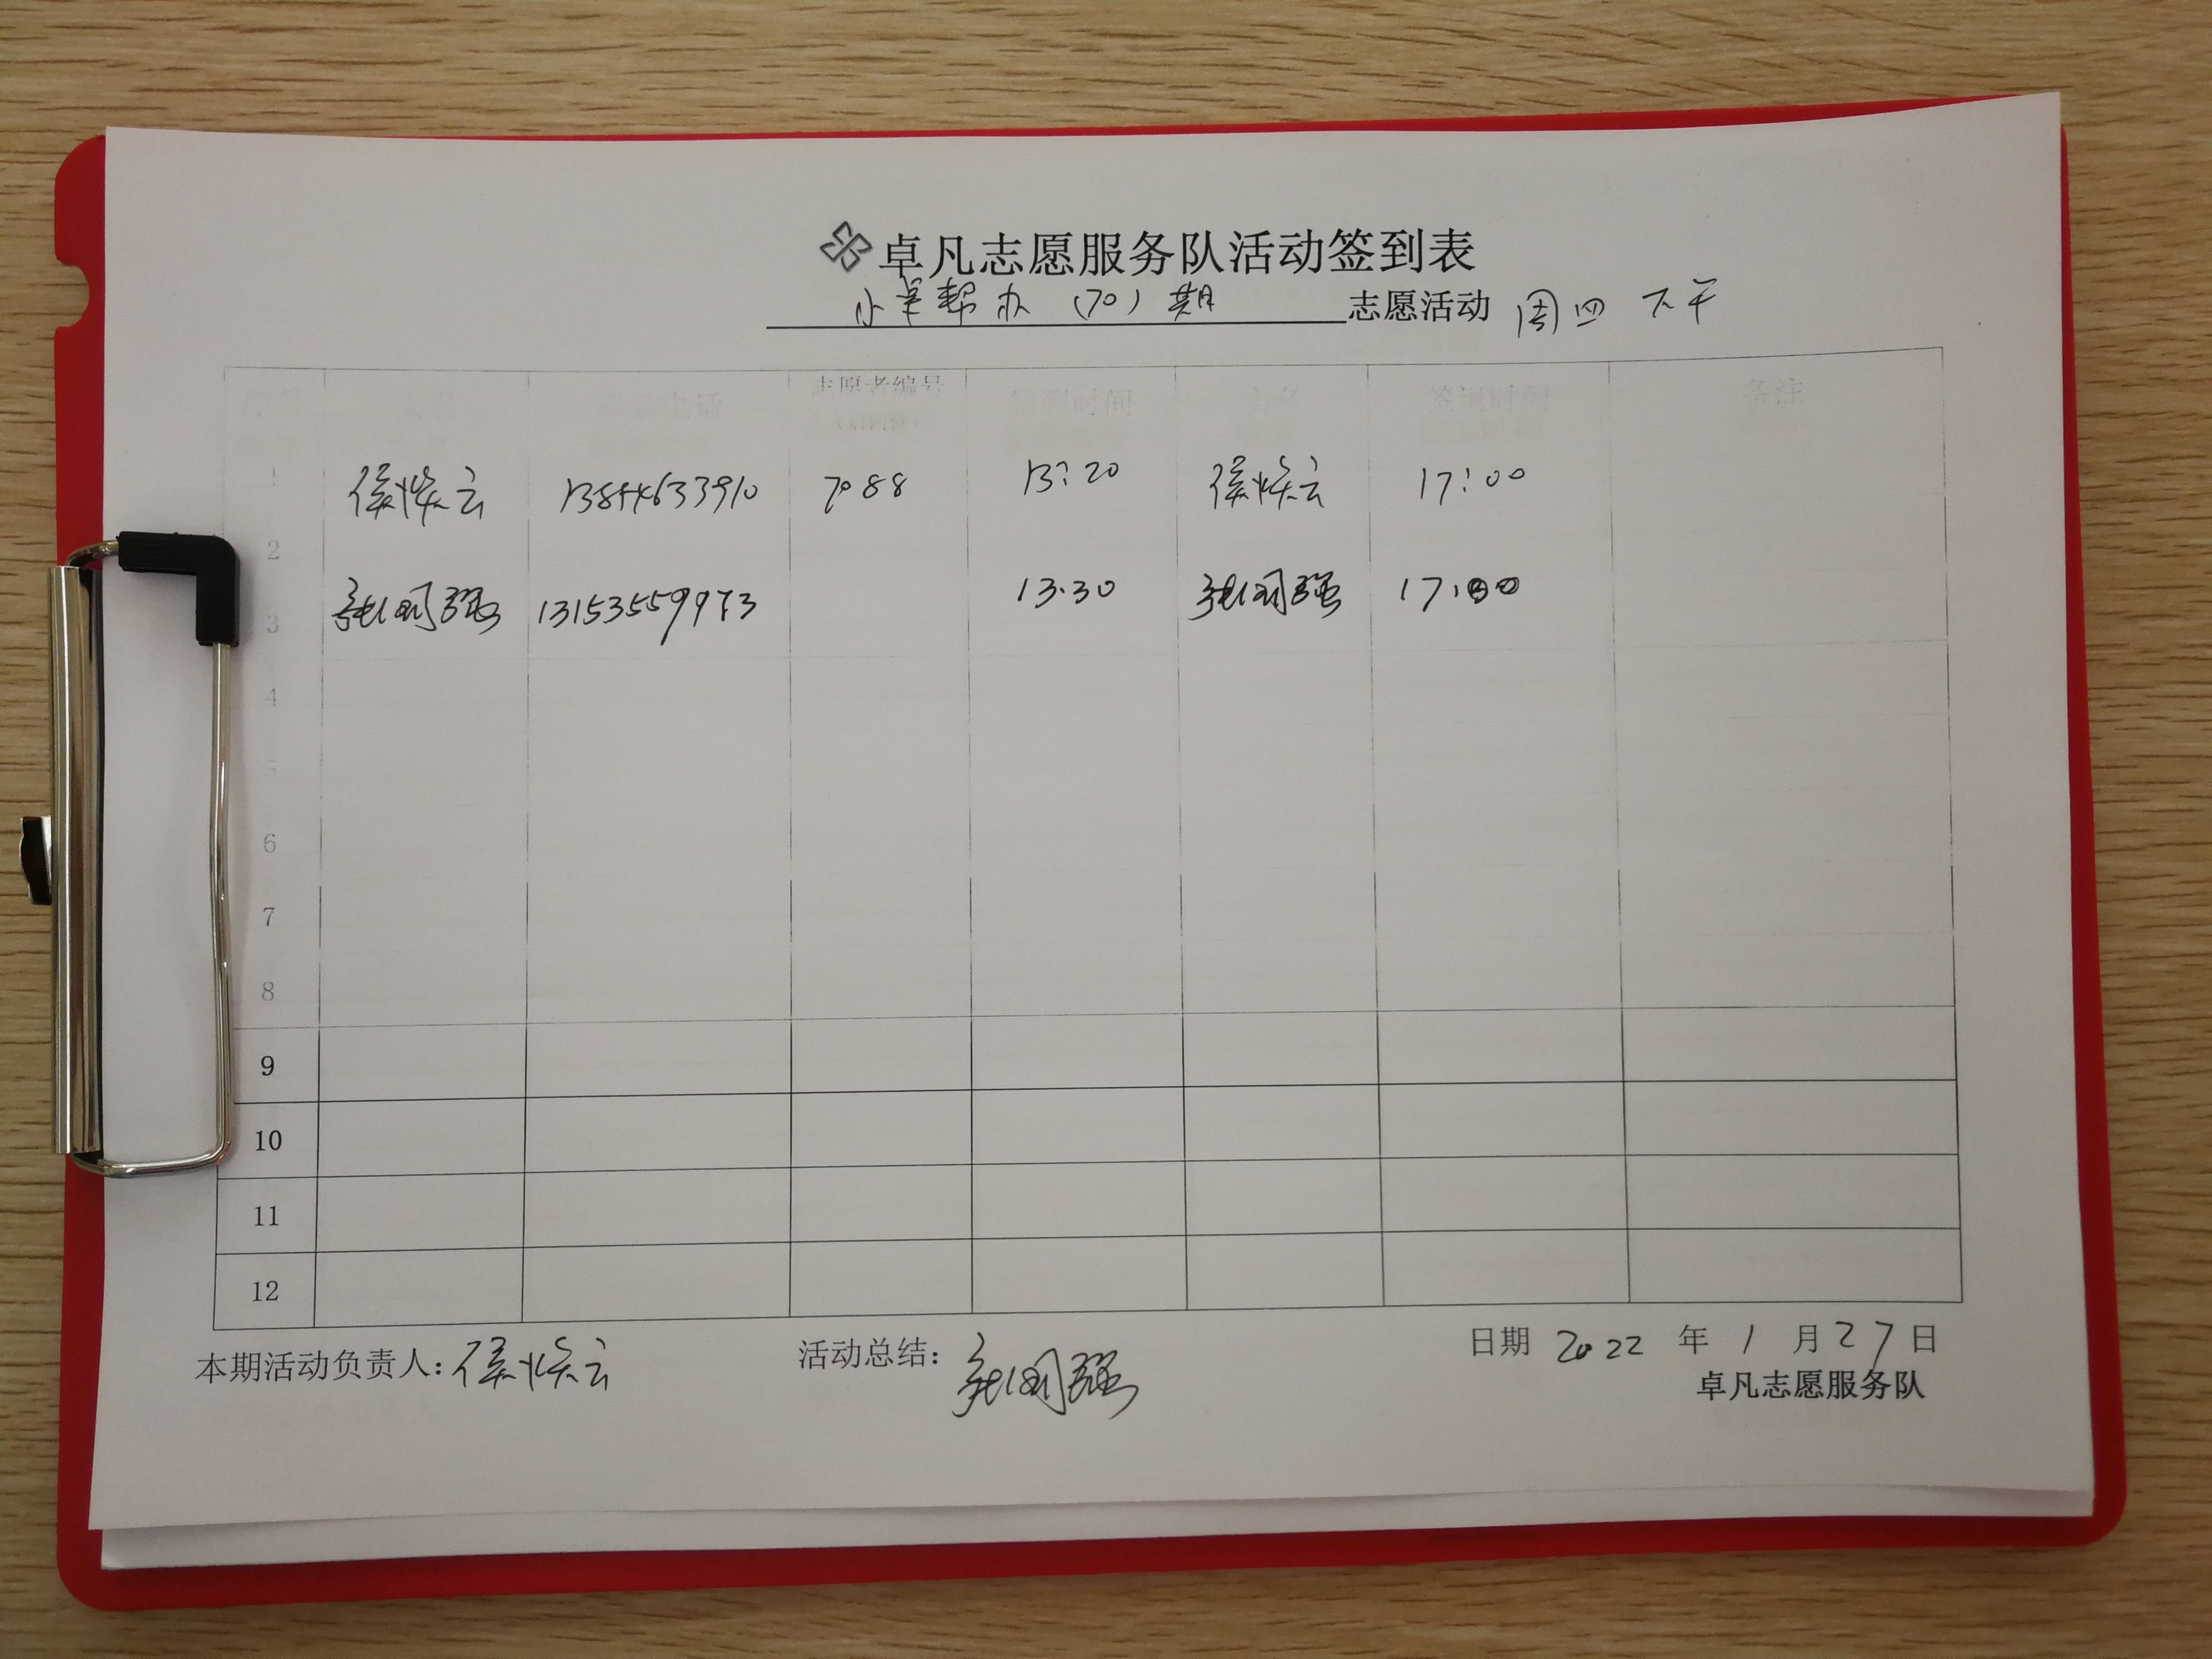 卓凡志愿服务队活动签到表
小卓帮办（70）期 志愿活动 周四 下午
志愿者编号 签到时间 签退时间 备注
联系电话 （后四位）
1 侯焕云 13844633910 7088 13:20 侯焕云 17:00
2
3 张国强 13153559973 13.30 张国强 17:00
4
5
6
7
8
9
10
11
12
本期活动负责人：侯焕云 活动总结：张国强 日期 2022 年 1 月 27 日
卓凡志愿服务队